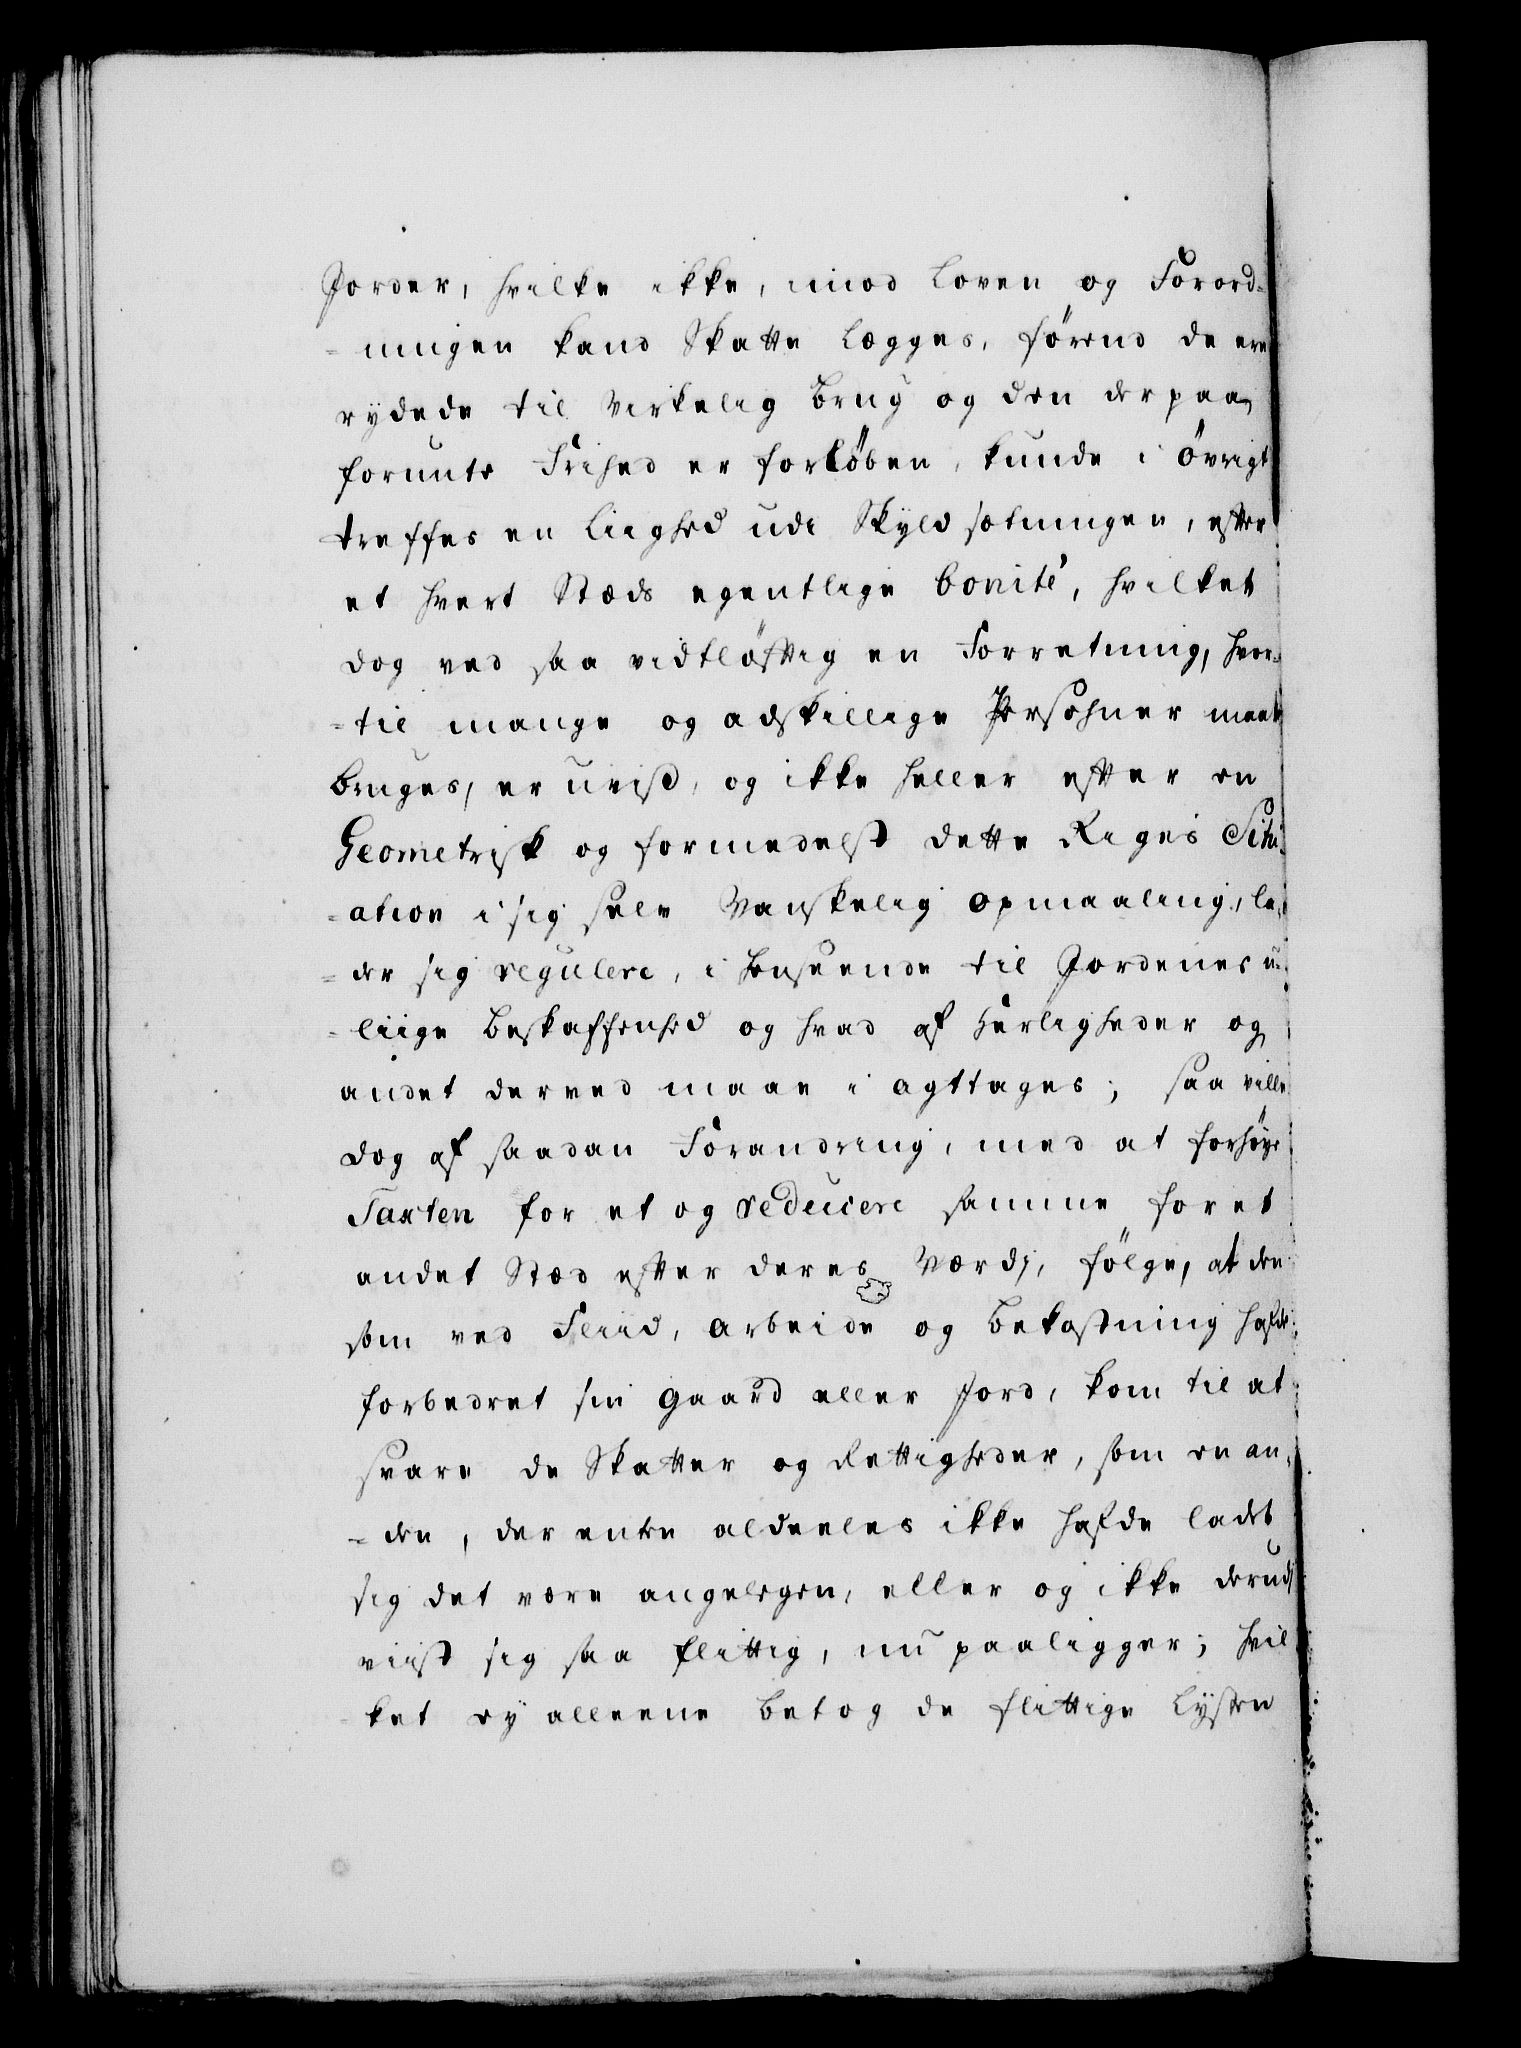 Jorder, hvilke ikke, imod Loven og Forord-
-ningen kand Skatte Lægges, førend de ere
rydede til Virkelig Brug og den derpaa
forunte Friheed er forløben, kunde i øvrigt
treffes en Liighed udi Skyld sætningen, efter
et hvert Stæds egentlige bonité, hvilket
dog ved saa vidtløftig en Forretning, hvor-
-til mange og adskillige Persohner maatte
bruges, er uvist, og ikke heller efter en
Geometrisk og formedelst dette Riges Situ-
-ation i sig selv Vanskelig opmaaling, la-
-der sig regulere, i henseende til Jordenes u-
-liige Beskaffenhed og hvad af Herligheder og
andet derved maae i agttages; saa ville
dog af saadan Forandring, med at forhøye
Taxten for et og reducere samme for et
andet Stæd efter deres Værdj, følge, at den
som ved Fliid, arbeide og Bekostning hafde
forbedret sin Gaard eller Jord, kom til at
svare de Skatter og Rettigheder, som en an-
-den, der enten aldeeles ikke hafde ladet
sig det være angelegen, eller og ikke derudj
viist sig saa flittig, nu paaligger; hvil
-ket ey alleene betog de flittige Lysten